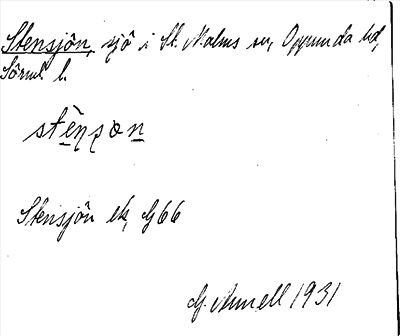 Stensjön, sjö i St. Malms sn, Oppunda hd,
Sörml. l.
stènʂon
Stensjön ek, G66
G. Annell 1931